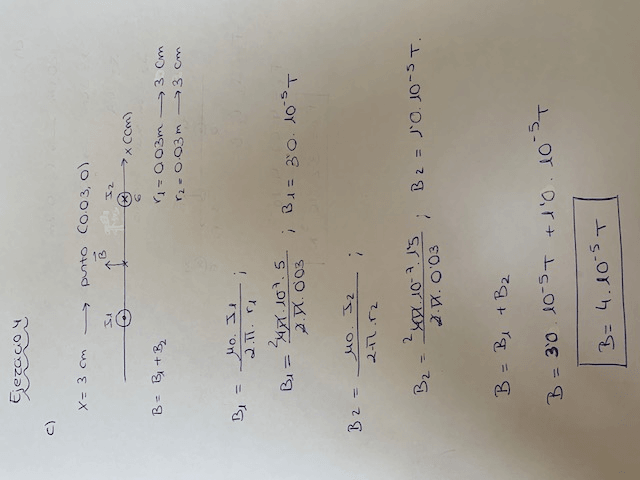 Ejercicio 4
c)
x = 3 cm → punto (0.03, 0)
I1 B I2
x (cm)
6
B = B1 + B2
r1 = 0.03m → 3 cm
r2 = 0.03m → 3 cm
B1 = μ0 . I1 / 2.π. r1 ;
B1 = 2 4π.10-7. 5 / 2.π. 0'03 ; B1 = 3'0. 10-5 T
B2 = μ0. I2 / 2π. r2 ;
B2 = 2 4π.10-7. 1'5 / 2.π. 0'03 ; B2 = 1'0. 10-5 T.
B = B1 + B2
B = 3'0. 10-5 T + 1'0. 10-5 T
B = 4. 10-5 T